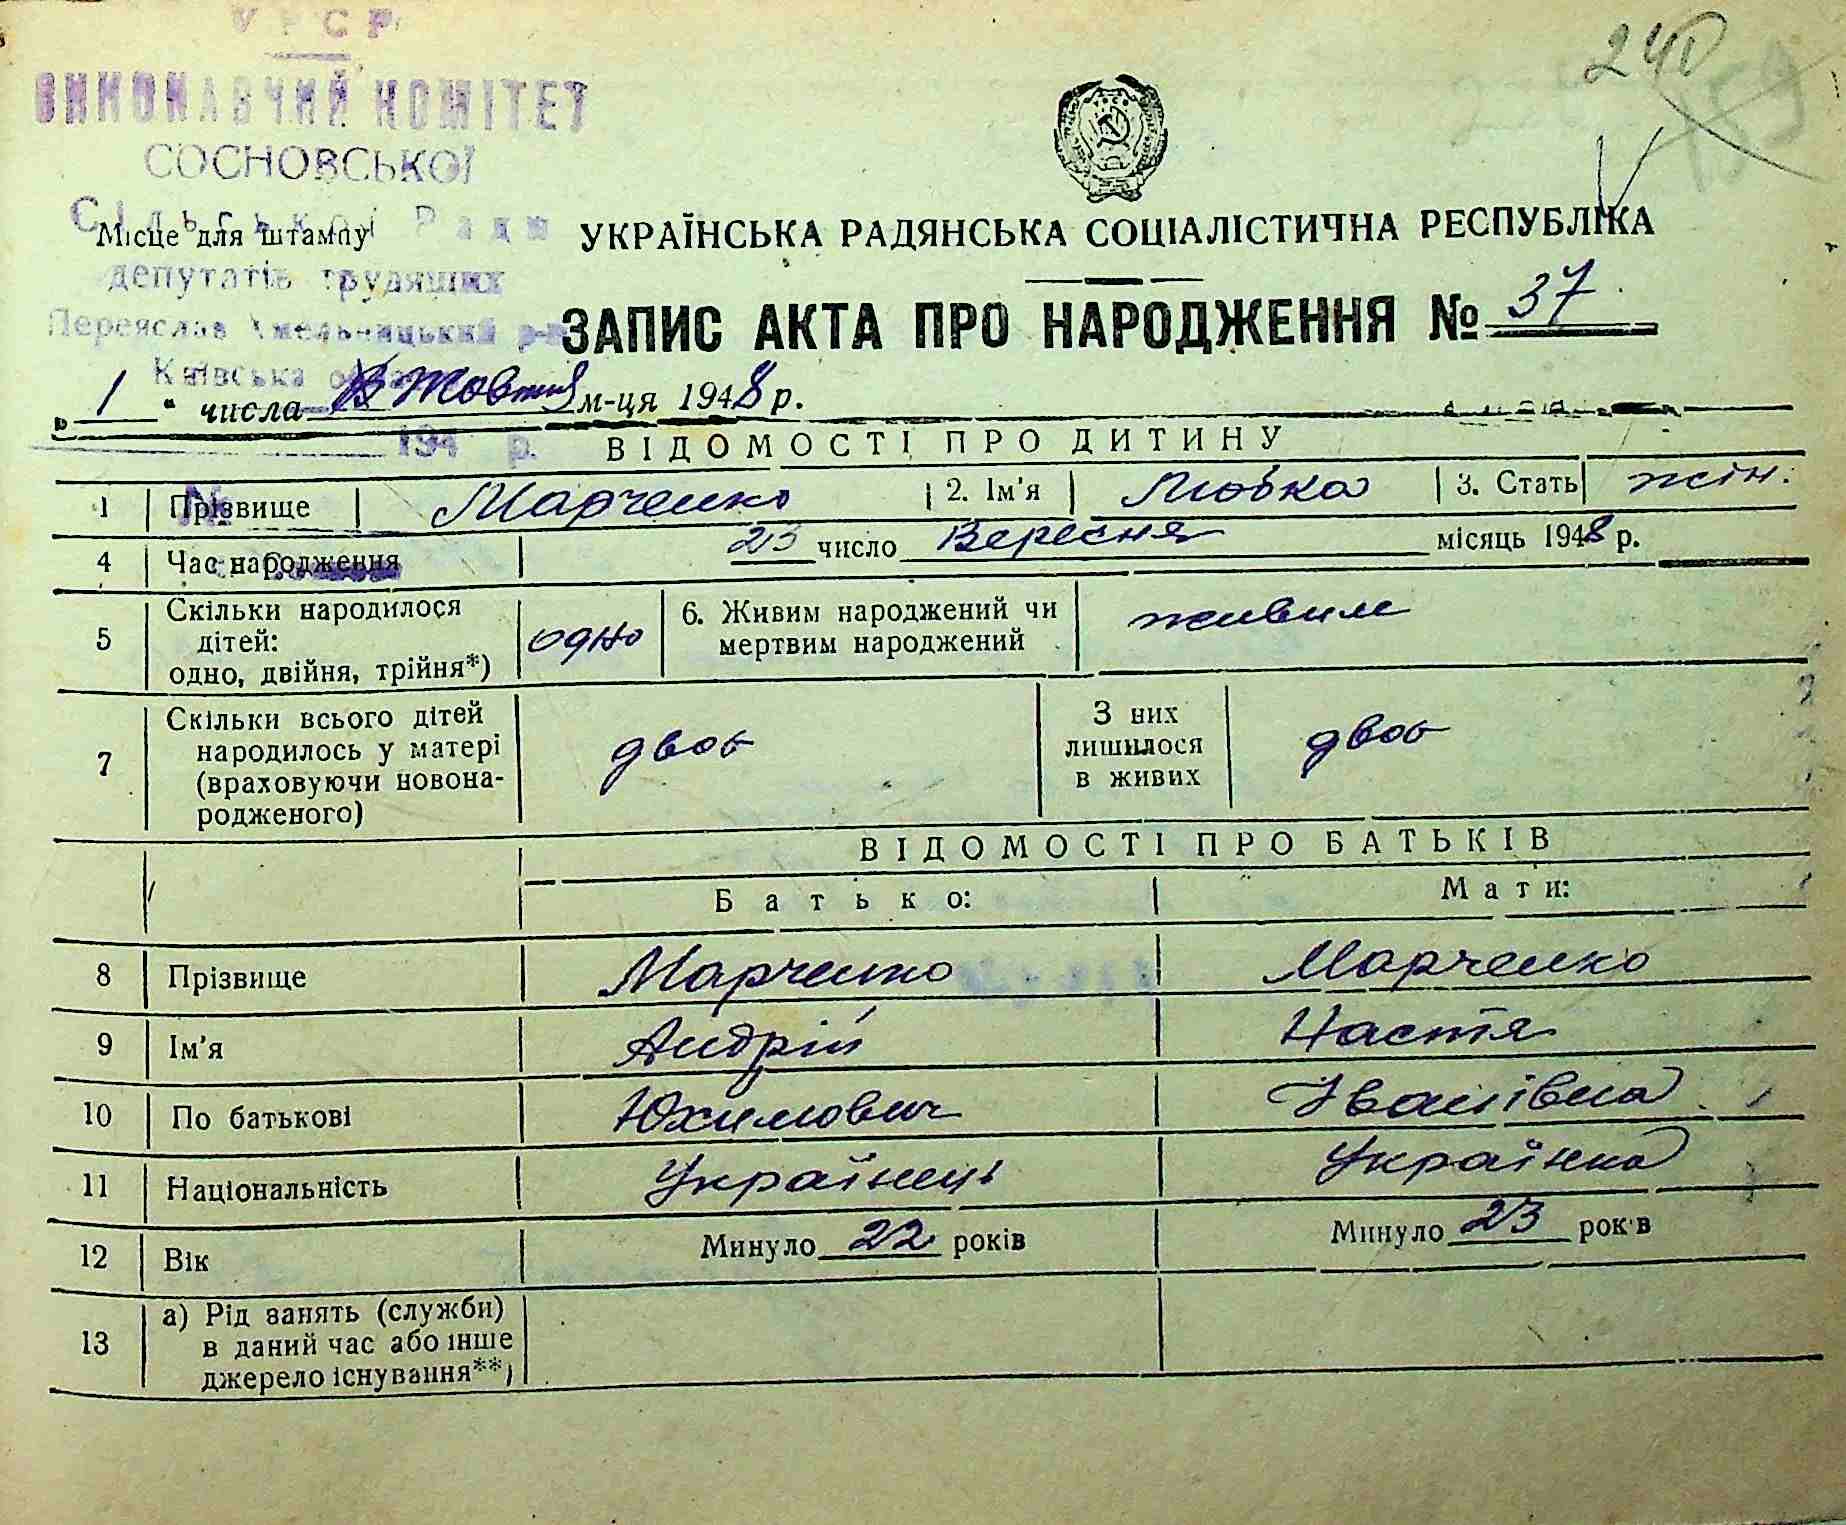 УРСР
ВИКОНАВЧИЙ КОМІТЕТ
СОСНОВСЬКОЇ
Сільської Ради
депутатів трудящих
Переяслав Хмельницький р-н
Київська
194 р.
№
240
159
Місце для штампу
УКРАЇНСЬКА РАДЯНСЬКА СОЦІАЛІСТИЧНА РЕСПУБЛІКА
ЗАПИС АКТА ПРО НАРОДЖЕННЯ № 37
„ 1 “ числа Жовтня м-ця 1948 р.
ВІДОМОСТІ ПРО ДИТИНУ
1 Прізвище Марченко 2. Ім'я Любка 3. Стать жін.
4 Час народження 23 число Вересня місяць 1948 р.
5 Скільки народилося дітей: одно, двійня, трійня*) одно 6. Живим народжений чи мертвим народжений живим
7 Скільки всього дітей народилось у матері (враховуючи новона-родженого) двоє З них лишилося в живих двоє
ВІДОМОСТІ ПРО БАТЬКІВ
Батько: Мати:
8 Прізвище Марченко Марченко
9 Ім'я Андрій Настя
10 По батькові Юхимович Іванівна
11 Національність Українець Українка
12 Вік Минуло 22 років Минуло 23 років
13 а) Рід занять (служби) в даний час або інше джерело існування**)